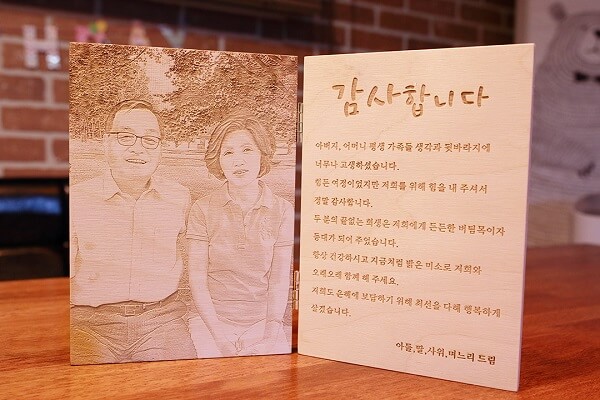 감사합니다
아버지, 어머니 평생 가족들 생각과 뒷바라지에
너무나 고생하셨습니다.
힘든 여정이었지만 저희를 위해 힘을 내 주셔서
정말 감사합니다.
두 분의 끝없는 희생은 저희에게 든든한 버팀목이자
등대가 되어 주었습니다.
항상 건강하시고 지금처럼 밝은 미소로 저희와
오래오래 함께 해 주세요.
저희도 은혜에 보답하기 위해 최선을 다해 행복하게
살겠습니다.
아들,딸,사위,며느리 드림